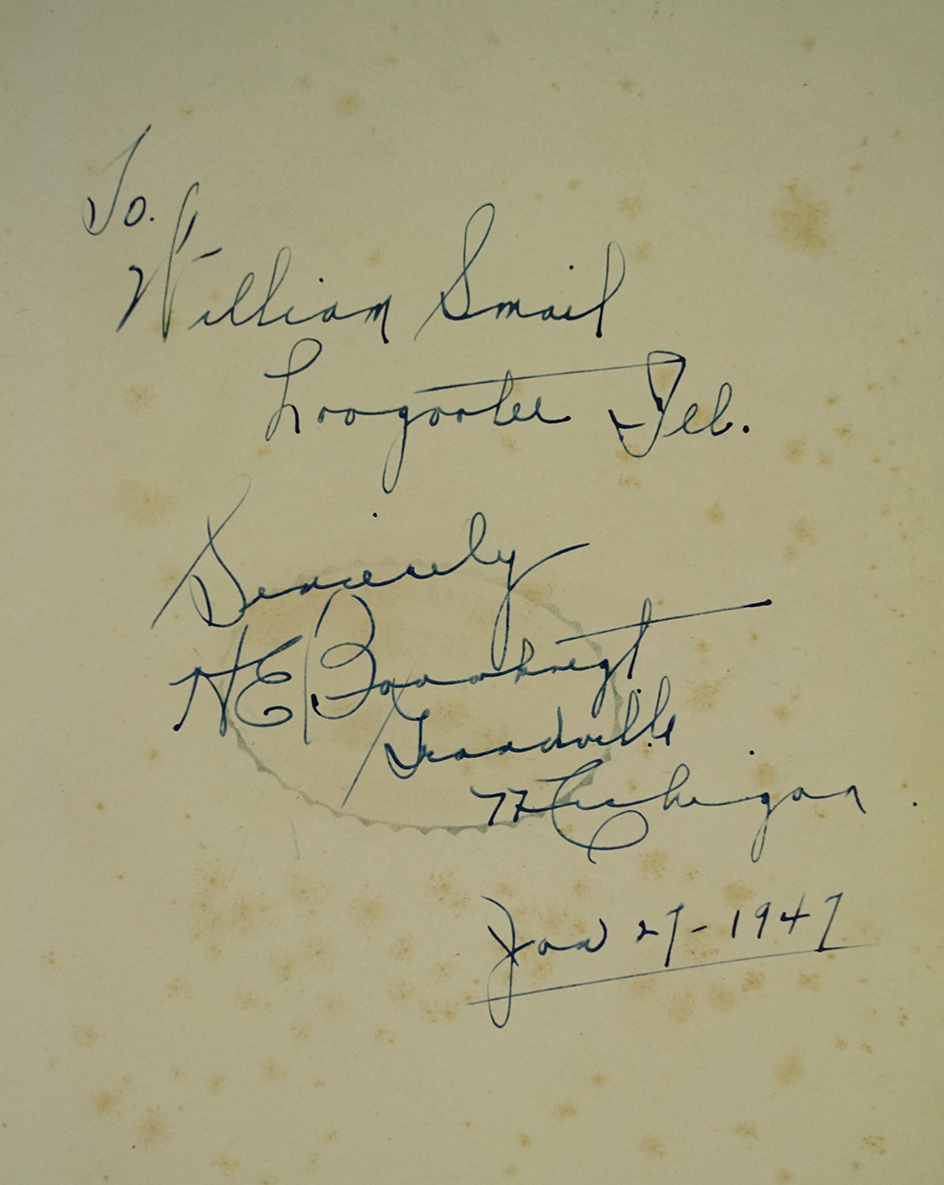 To.
William Smail
Loogootee Ill.
Sincerely
H E Bouwknegt
Grandville
Michigan.
Jan 27-1947